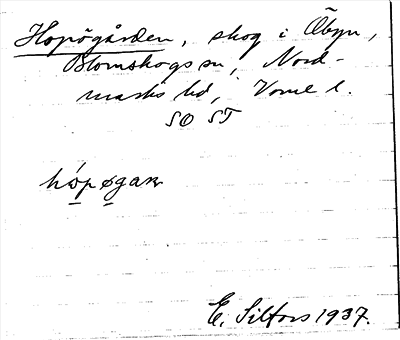 Hopögården, skog i Åbyn,
Blomskogs sn, Nord-
marks hd, Värml l.
SO ST
hópøgaɳ
E. Silfors 1937.